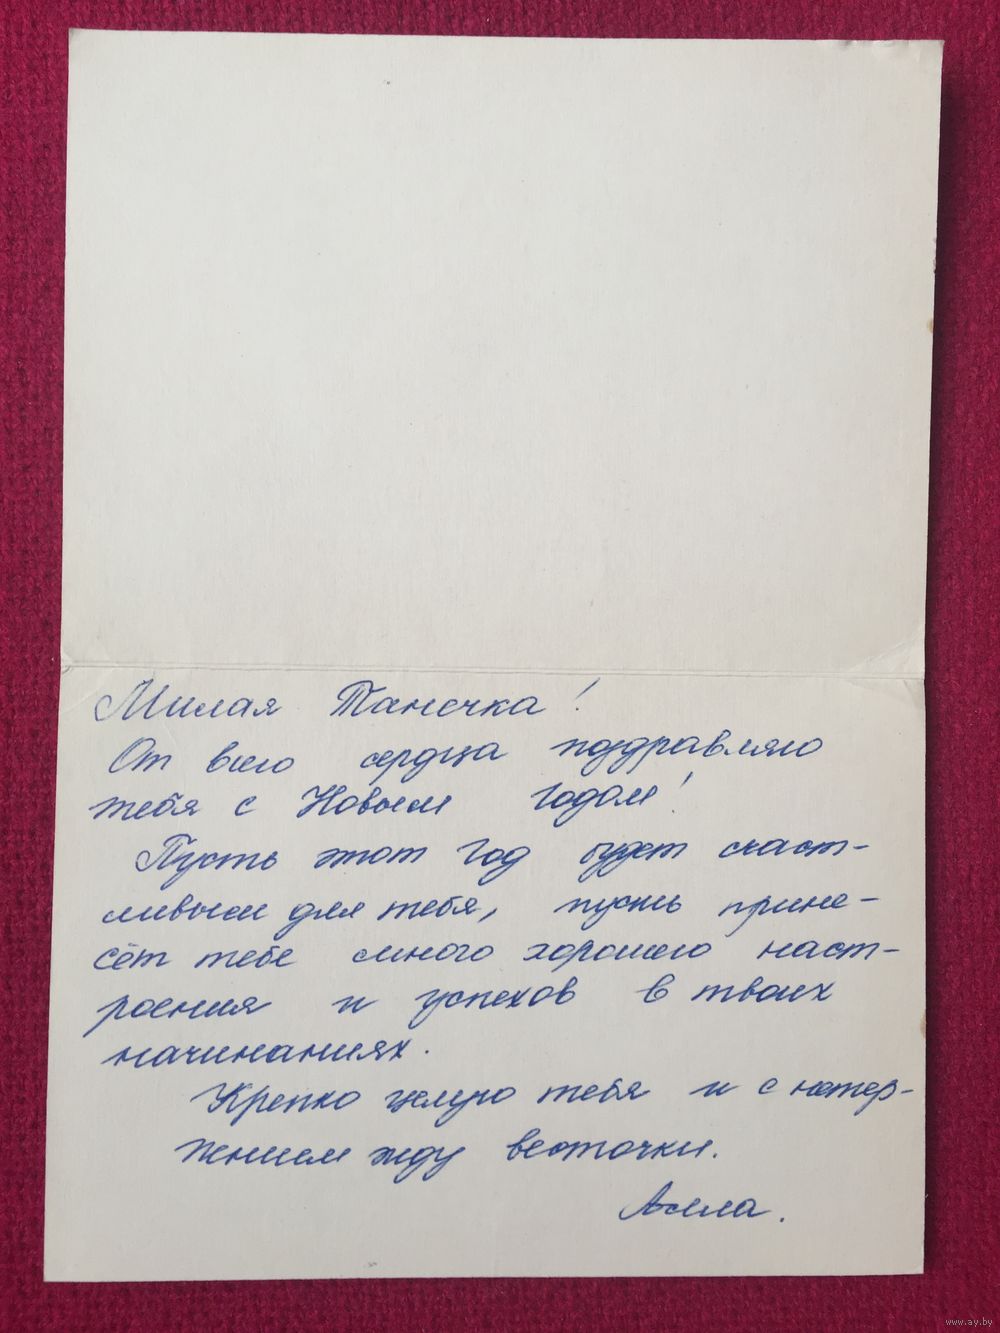 Милая Танечка!
От всего сердца поздравляю
тебя с Новым Годом!
Пусть этот год будет счаст-
ливым для тебя, пусть прине-
сёт тебе много хорошего наст-
роения и успехов в твоих
начинаниях.
Крепко целую тебя и с нетер-
жением жду весточки.
Алла.
www.ay.by